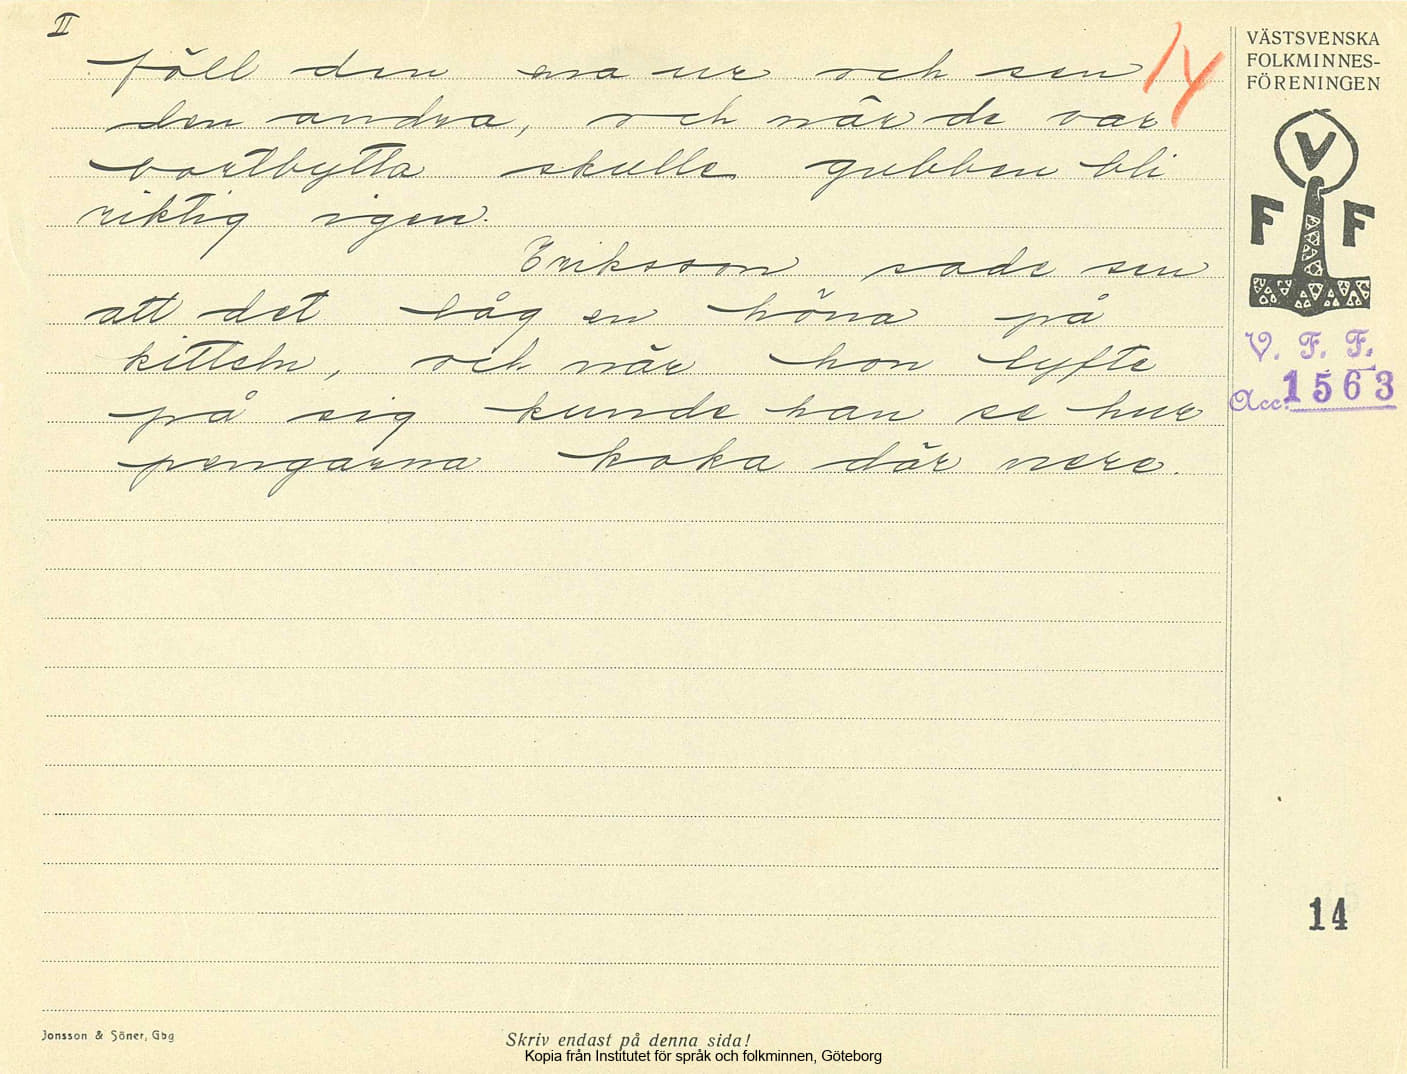 II
föll den ena ur och sen
den andra, och när de var
bortbytta skulle gubben bli
riktig igen.
Eriksson sade sen
att det låg en höna på
kitteln, och när hon lyfte
på sig kunde han se hur
pengarna koka där nere.
14
VÄSTSVENSKA
FOLKMINNES-
FÖRENINGEN
V
F F
V. F. F.
Acc. 1563
14
Jonsson & Söner, Gbg
Skriv endast på denna sida!
Kopia från Institutet för språk och folkminnen, Göteborg